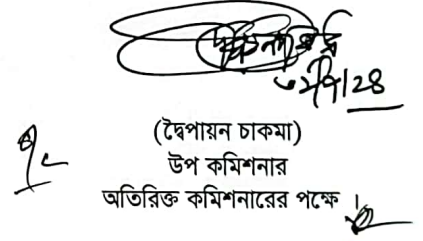 (দ্বৈপায়ন চাকমা)
উপ কমিশনার
অতিরিক্ত কমিশনারের পক্ষে।